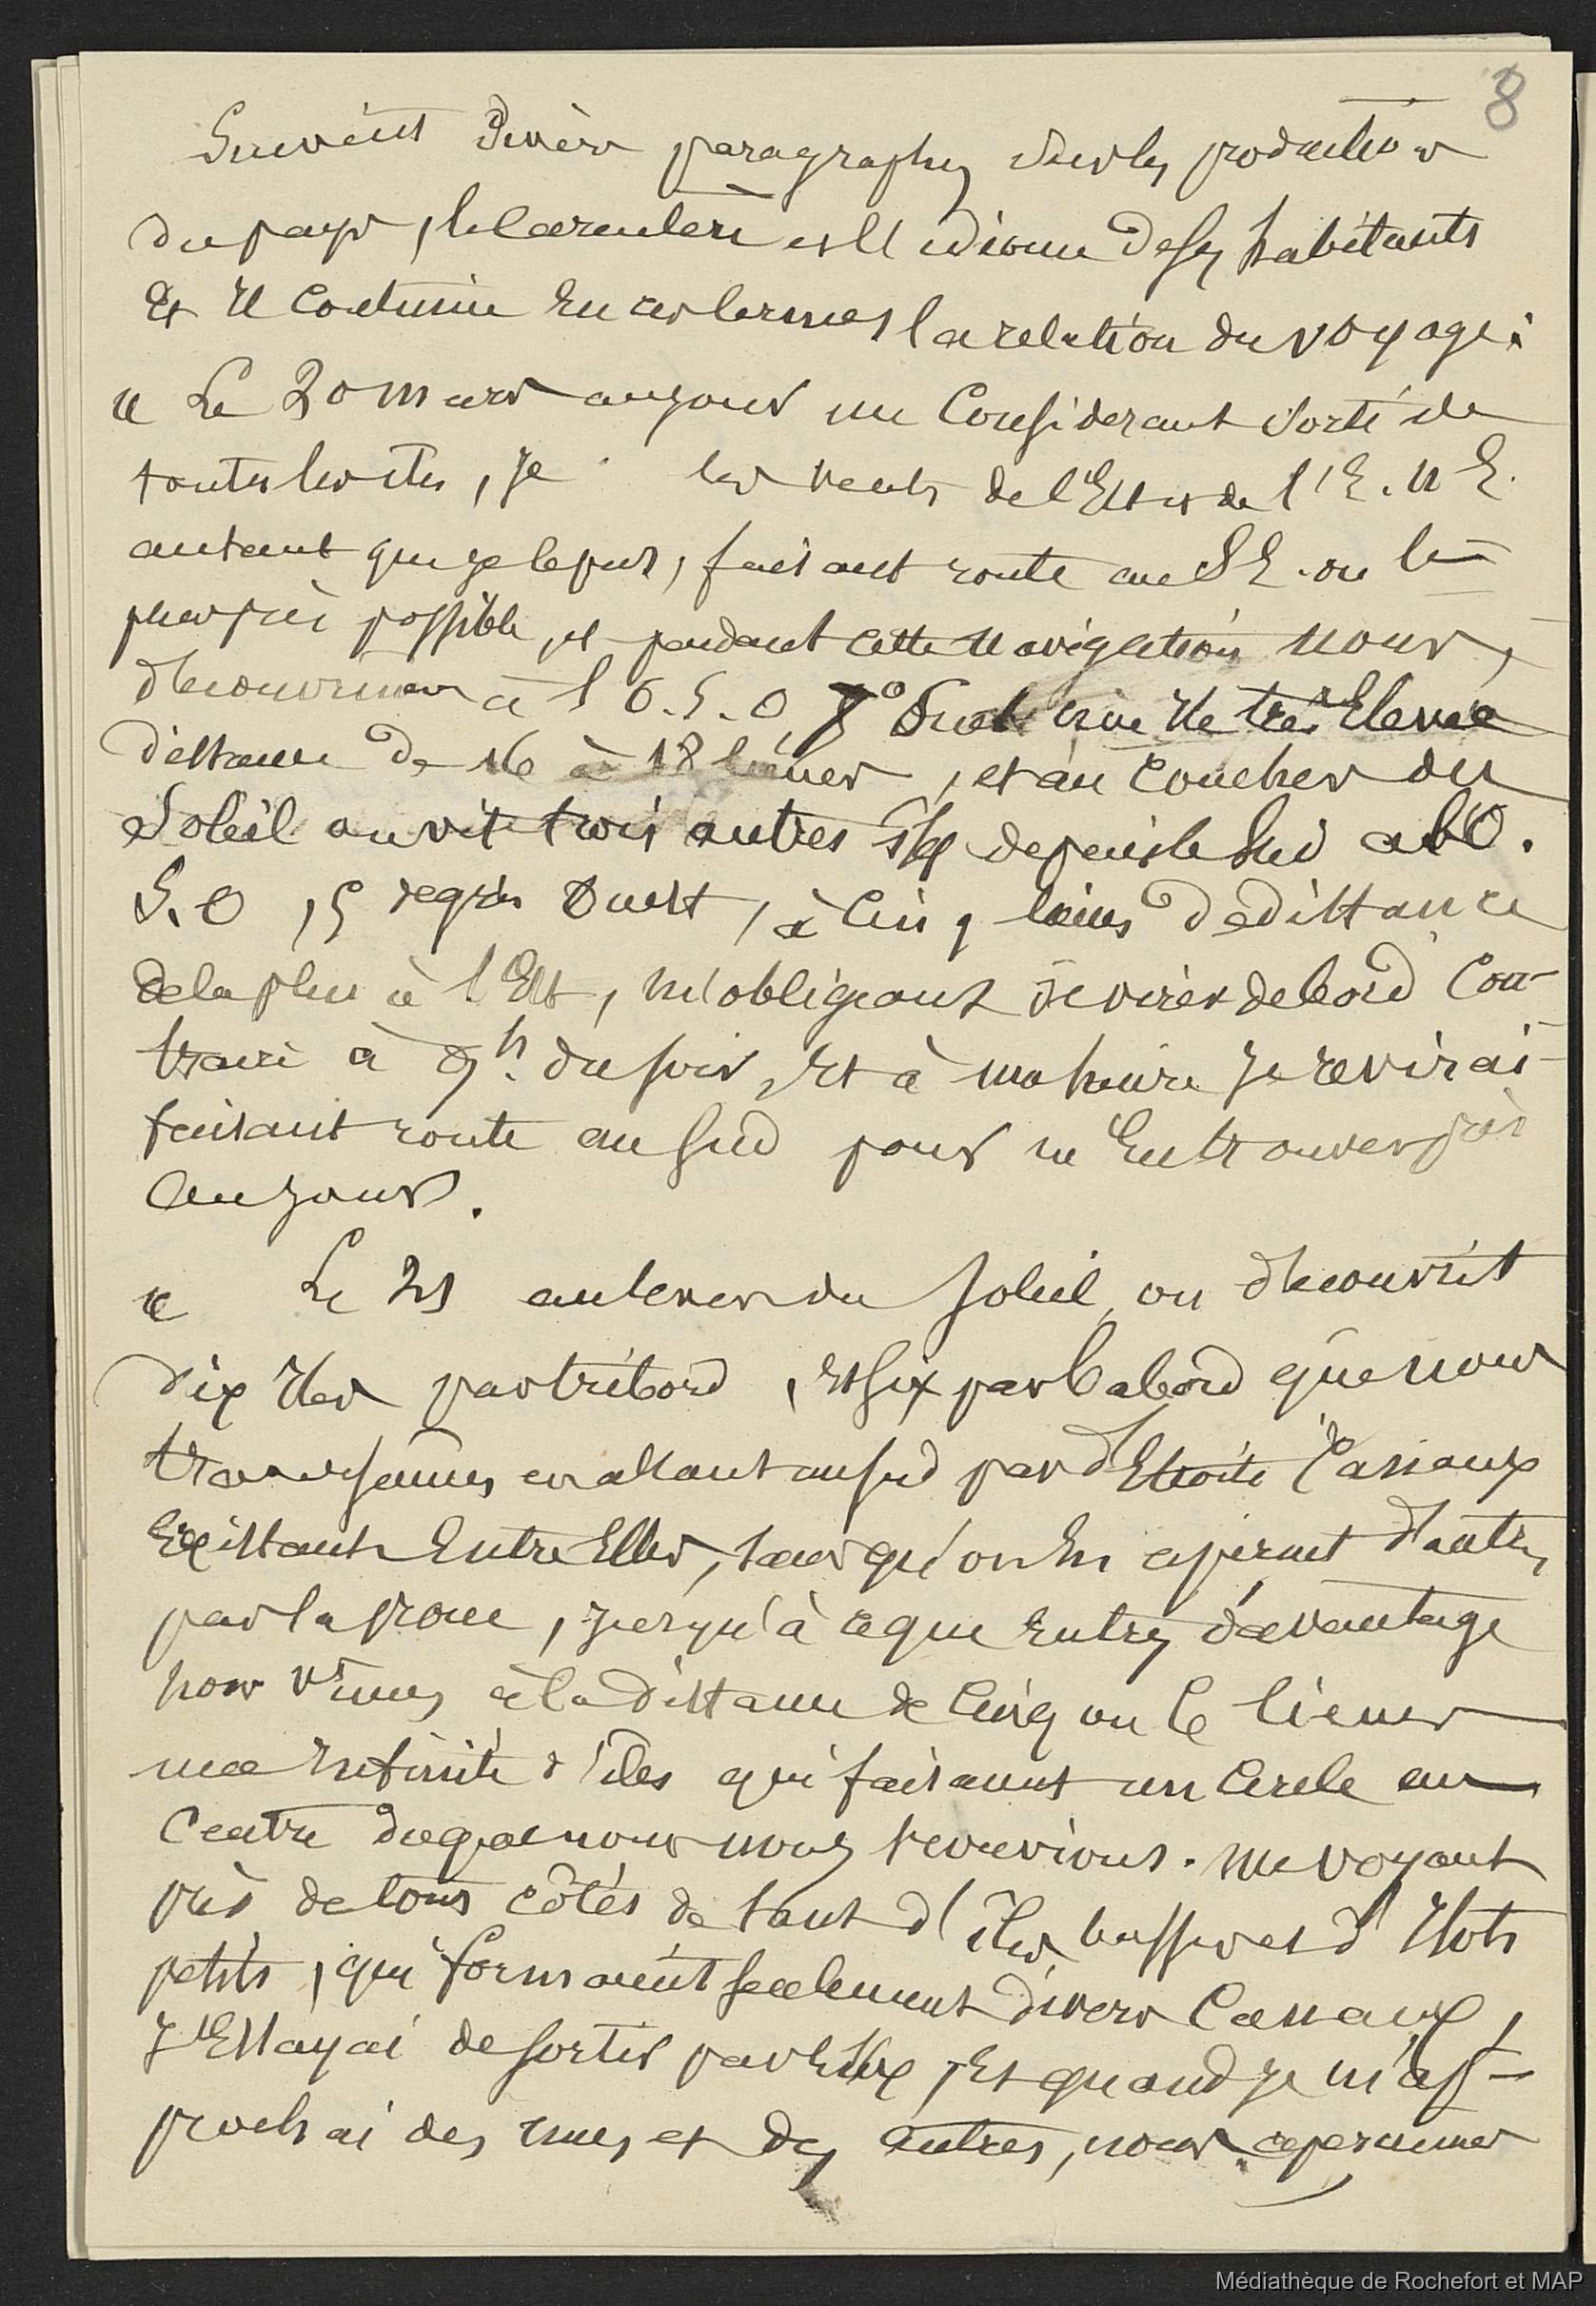 8
Suivent divers paragraphes sur les productions
du pays, le caractère et l'idiome de ses habitants
Et il continue en ces termes la relation du voyage:
« Le 20 mars au jour me considerant sorti de
toutes les îles, je les vents de l'Est et de l'E.N.E.
autant que je le pus, faisant route au S.E. ou le
plus près possible, et pendant cette navigation nous,
decouvrimes à l'O.S.O. Sud une île très Elevée
distance de 16 à 18 lieues, et au coucher du
Soleil on vit trois autres îles depuis le Sud a l'O.
S.O, 5 degrés Ouest, à cinq lieues de distance
de la plus à l'Est, m'obligeant de virer de bord Con-
traire à 9h. du soir, Et à ma heure je revirai
faisant route au Sud pour m'En trouver près
au jour.
« Le 21 au lever du soleil, on decouvrit
dix îles par tribord, et six par babord que nous
traversâmes en allant au sud par d'Etroits Canaux
Existants Entre Elles, sans qu'on En aperçut d'autres
par la proue, jusqu'à ce que Entrés davantage
nous vîmes à la distance de cinq ou 6 lieues
une Infinité d'îles qui faisaient un Cercle au
Centre duquel nous nous trouvions. Me voyant
près de tous côtés de tant d'îles basses et d'Ilots
petits, qui formaient seulement divers Canaux,
J'Essayai de sortir par Eux, Et quand je m'ap-
prochai des unes et des autres, nous aperçumes
Médiathèque de Rochefort et MAP